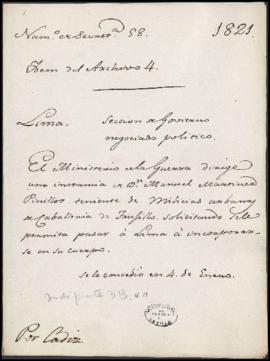 Num.º de Secret.ª 58. 1821.
Idem del Archivo 4.
Lima. Seccion de Govierno
negociado politico.
El Ministerio de la Guerra dirige
una instancia de Dⁿ. Manuel Martinez
Pinillos teniente de Milicias urbanas
de Caballeria de Truxillo solicitando se le
permita pasar á Lima á incorporar-
se en su cuerpo.
se le concedio en 4. de Enero.
Por Cadiz